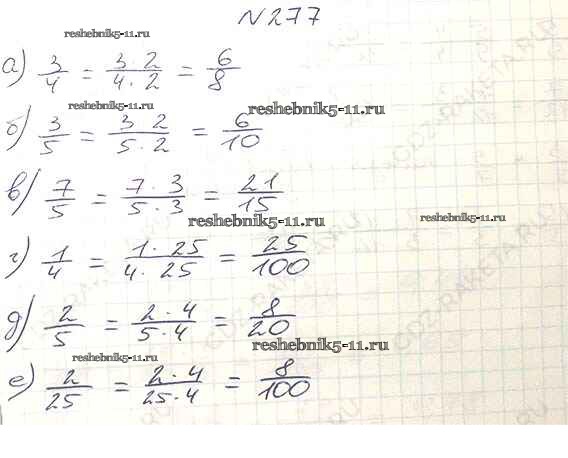 N277
reshebnik5-11.ru
а) 3/4 = 3·2/4·2 = 6/8
reshebnik5-11.ru reshebnik5-11.ru
б) 3/5 = 3 2/5·2 = 6/10
в) 7/5 = 7·3/5·3 = 21/15
reshebnik5-11.ru reshebnik5-11.ru
г) 1/4 = 1·25/4·25 = 25/100
д) 2/5 = 2·4/5·4 = 8/20
reshebnik5-11.ru reshebnik5-11.ru
е) 2/25 = 2·4/25·4 = 8/100